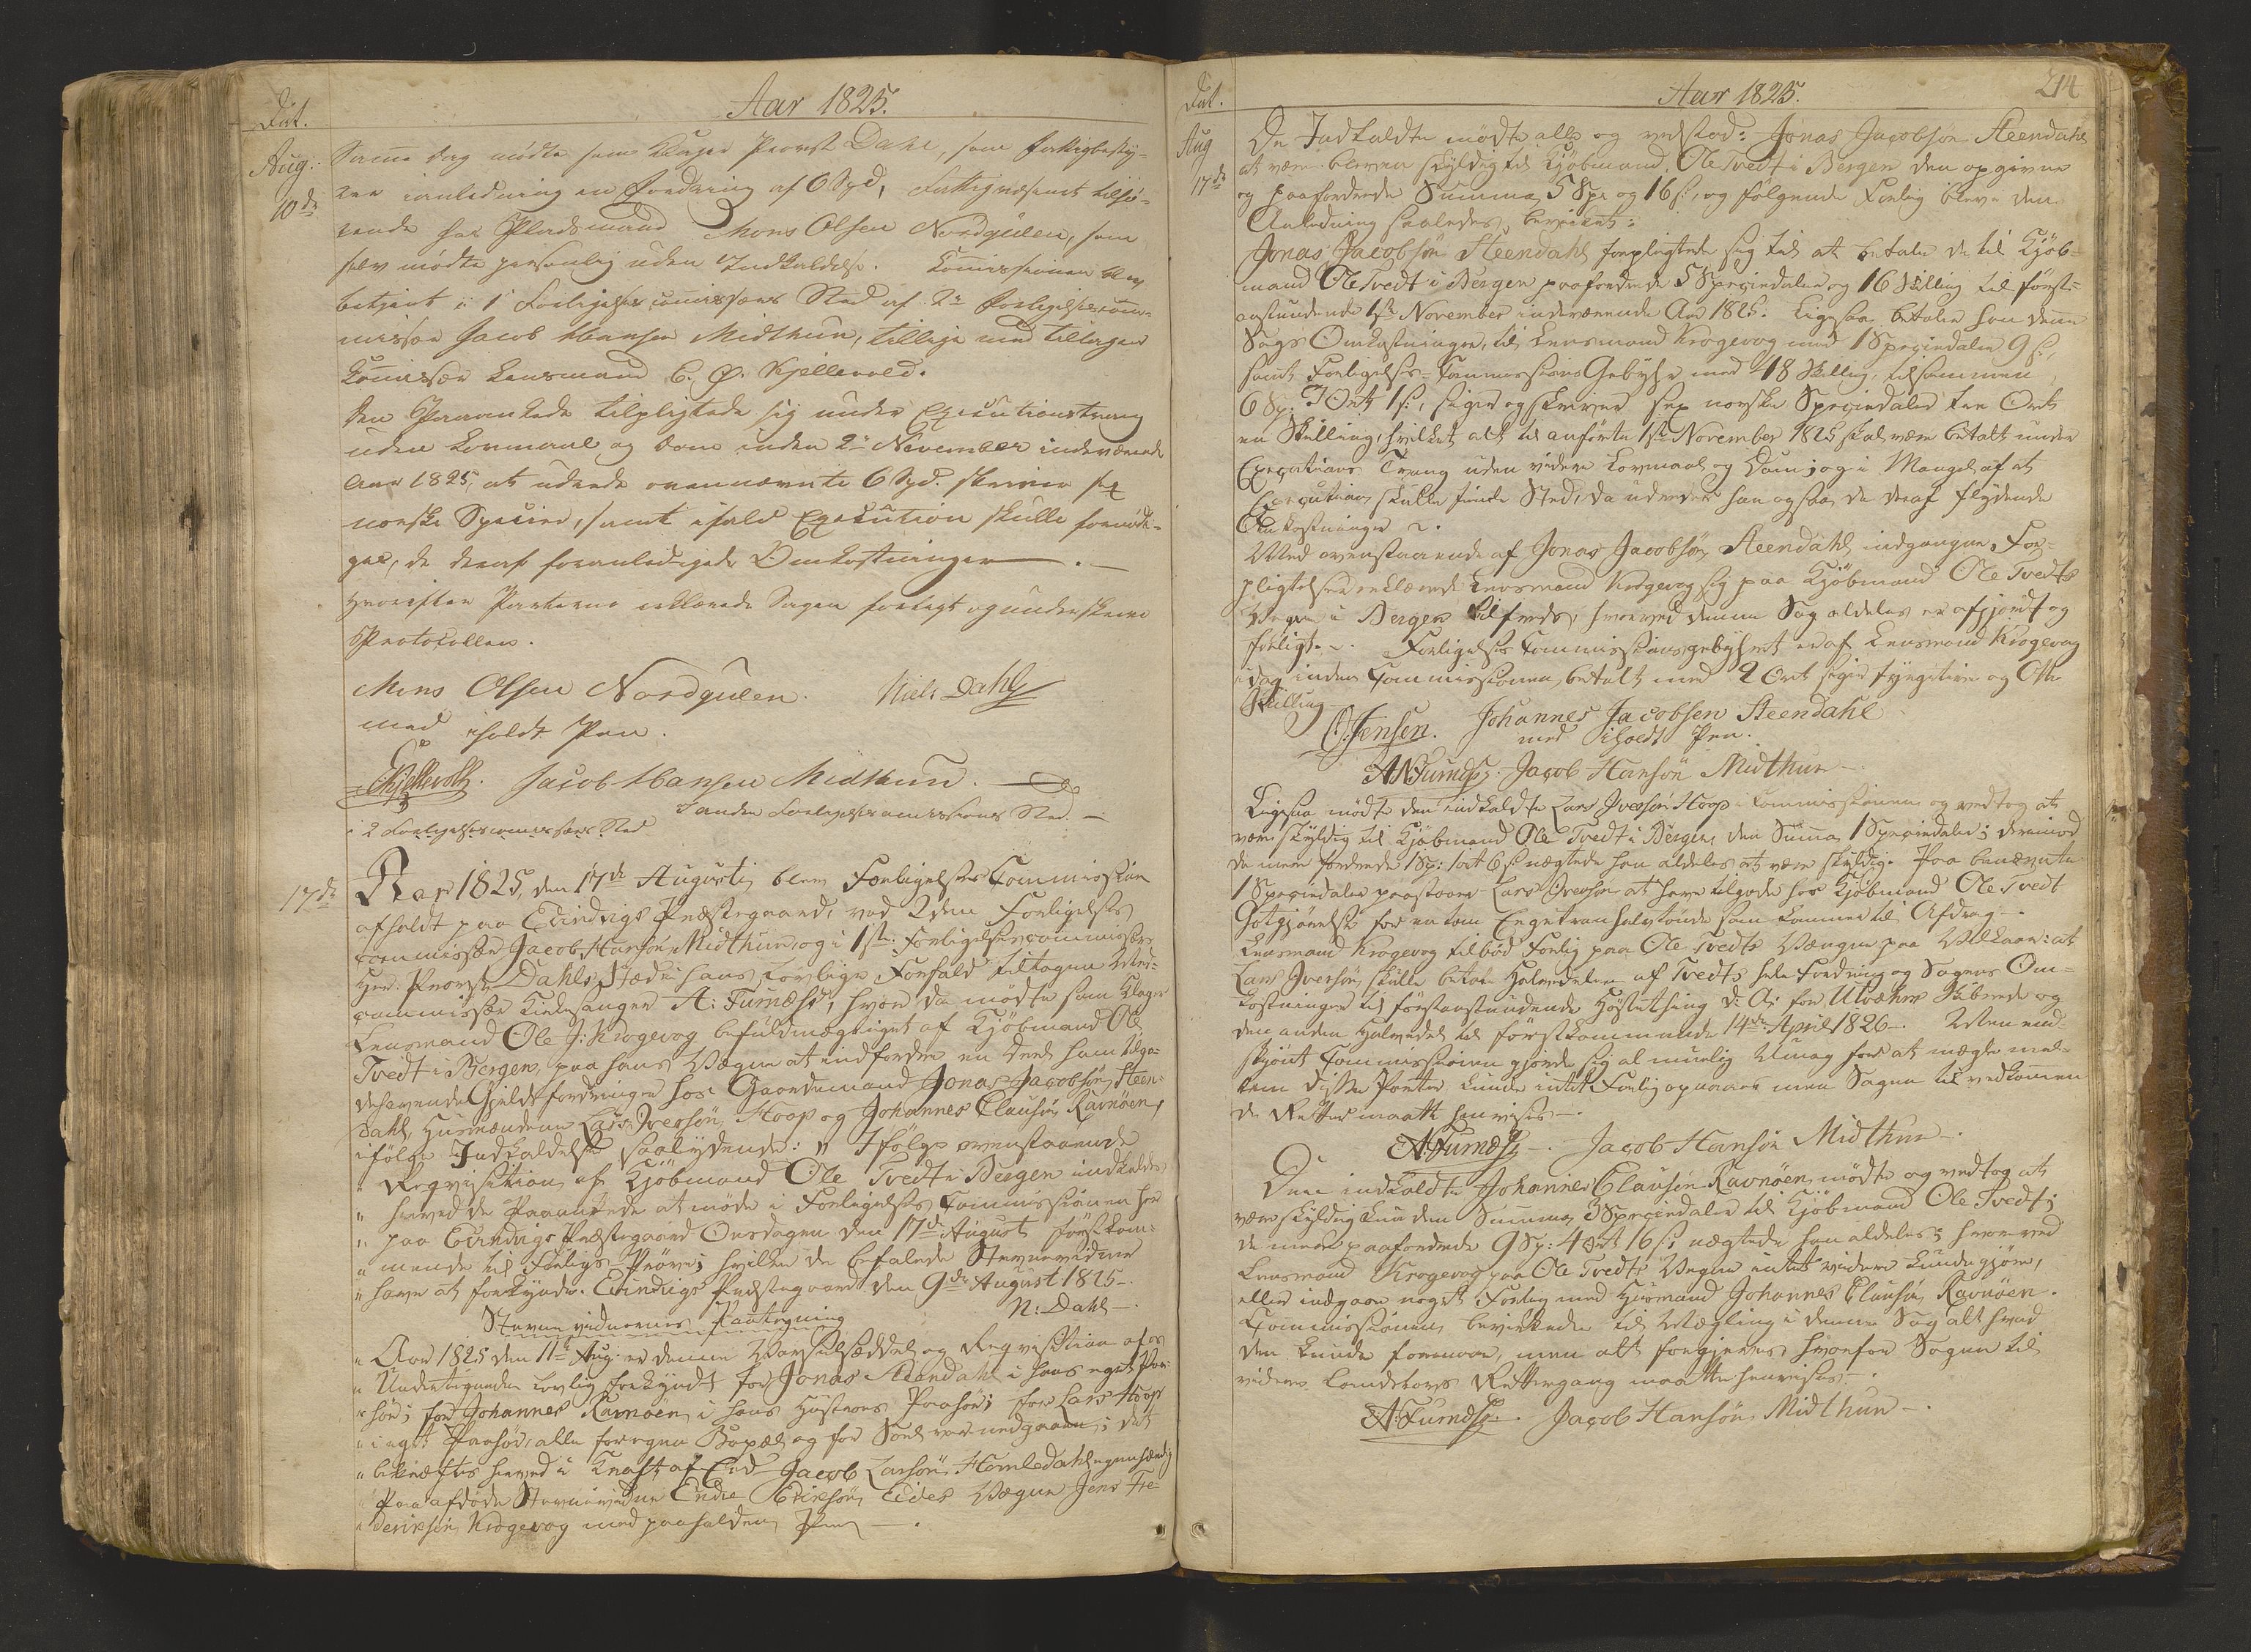 Dat.
Aar 1825.
Aug.
10de
Samme Dag mødte som Klager Provst Dahl, som Fattigbesty-
rer i anledning en Fordring af 6 Spd, Fattigvæsenet tilhø-
rende hos Pladsmand Mons Olsen Nordgulen, som
selv mødte personlig uden Indkaldelse. Commissionen blev
betjent i 1e Forligelsescommissærs Sted af 2n Forligelsescom-
missær Jacob Hansen Midthun, tillige med tiltagen
Commissær Lensmand E. Ø. Kjellevold.
Den Paaankede tilpligtede sig under Executionstvang
uden Lovmaal og Dom inden 2n November indeværende
Aar 1825, at udrede ovennævnte 6 Spd. skriver sex
norske Specier, samt ifald Execution skulle fornødi-
ges, de deraf foranledigede Omkostninger.
Hvorefter Parterne erklærede Sagen forligt og underskrev
Protocollen.
Mons Olsen Nordgulen. Niels Dahl
med iholdt Pen.
EKjellevold. Jacob Hansen Midthun.
i 2 Forligelsescommissærs Sted
17de
Aar 1825, den 17de Augusti blev Forligelses Commission
afholdt paa Evindvigs Præstegaard, ved 2den Forligelses
commissær Jacob Hansøn Midthun, og i 1ste Forligelsescommissær
Her Provst Dahls Stæd i hans Lovlige Forfald tiltagne Med-
commissær Kirkesanger A: Furnæss, hvor da mødte som Klager
Lensmand Ole J: Krogevog befuldmægtiget af Kjøbmand Ole
Tvedt i Bergen, paa hans Vægne at indfordre en Deel ham tilgo-
dehavende Gjelds fordringer hos Gaardmand Jonas Jacobsøn Steen-
dahl, Husmændene Lars Iversøn Hoop og Johannes Clausøn Ravnøen,
ifølge Indkaldelse saalydende: „ Ifølge ovenstaaende
„ Reqvisition af Kjøbmand Ole Tvedt i Bergen indkaldes
„ herved de Paaankede at møde i Forligelses Commissionen her
„ paa Evindvigs Præstegaard Onsdagen den 17de August førstkom-
„ mende til Forligs Prøve; hvilken de befalede Stevnevidner
„ have at forkynde. Evindvigs Præstegaard den 9de August 1825.
N: Dahl.
Stevnevidnernes Paategning
„ Aar 1825 den 11te Aug. er denne Varselsseddel og Reqvisition af os
„ Undertegnede lovlig forkyndt for Jonas Steendahl i hans eget Paa-
„ hør; for Johannes Ravnøen i hans Hustroes Paahør; for Lars Hoop
„ i eget Paahør, alle for egne Bopæl og for Soel var nedgaaen; det
„ bekræftes herved i Kraft af Eed Jacob Larsøn Hømledahl egenhændig
„ Paa afdøde Stevnevidne Endre Erichsøn Eides Vægne Jens Fre-
„ deriksøn Krogevog med paaholden Pen.
Dat.
Aar 1825.
214
Aug
17de
De Indkaldte mødte alle og vedstod: Jonas Jacobsøn Steendahl
at være bleven skyldig til Kjøbmand Ole Tvedt i Bergen den opgivne
og paafordrede Summa 5 Spe og 16 s, og følgende Forlig blev i den
Anledning saaledes bevirket:
Jonas Jacobsøn Steendahl forpligtede sig til at betale de til Kjøb-
mand Ole Tvedt i Bergen paafordrede 5 Speciedaler og 16 skilling til først-
anstundende 1ste November indeværende Aar 1825. Ligesaa betaler han denne
Sags Omkostninger, til Lensmand Krogevog med 1 Speciedaler 9 s,
samt Forligelses-Commissions Gebyhr med 18 Skilling, tilsammen
6 Sp: 3 Ort 1 s, siger og skriver sex norske Speciedaler tre Ort
en Skilling, hvilket alt til anførte 1ste November 1825 skal være betalt under
Executions Tvang uden videre Lovmaal og Dom; og i Mangel af at
Execution skulle finde Sted, da udreder han ogsaa de deraf flydende
Omkostninger.
Med ovenstaaende af Jonas Jacobsøn Steendahl indgangne For-
pligtelser erklærede Lensmand Krogevog sig paa Kjøbmand Ole Tvedts
Vegne i Bergen tilfreds, hvorved denne Sag aldeles er afgjordt og
forligt. Forligelses Commissionsgebyhret er af Lensmand Krogevog
idag inden Commissionen betalt med 2 Ort siger fyrgetive og Otte
Skilling.
O. Jensen. Johannes Jacobsen Steendahl
med iholdt Pen.
A Furnæss. Jacob Hansøn Midthun
Ligesaa mødte den indkaldte Lars Iversøn Hoop i Commissionen og vedtog at
være skyldig til Kjøbmand Ole Tvedt i Bergen den Summa 1 Speciedaler; derimod
de mere fordrede 1 Sp: 1 ort 6 s nægtede han aldeles at være skyldig. Paa benævnte
1 Speciedaler paastaaer Lars Iversøn at have tilgode hos Kjøbmand Ole Tvedt
Godtgjørelse for en tom Egetræes halvtønde som kommer til Afdrag.
Lensmand Krogevog tilbød Forlig paa Ole Tvedts Vægne paa Vilkaar: at
Lars Iversøn skulle betale Halvdelen af Tvedts hele Fordring og Sagens Om-
kostninger til førstanstundende Høstething d: A: for Utvæhrs Skibrede og
den anden Halvedel til førstkommende 14de April 1826. Men end-
skjønt Commissionen gjorde sig al muelig Umag for at mægle mel-
lem disse Parter kunde intet Forlig opnaaes men Sagen til vedkommen
de Retter maatte henvises.
A. Furnæss. Jacob Hansøn Midthun.
Den indkaldte Johannes Clausøn Ravnøen mødte og vedtog at
være skyldig kun den Summa 3 Speciedaler til Kjøbmand Ole Tvedt;
de mere paafordrede 9 Sp: 4 Ort 16 s; nægtede han aldeles; hvorved
Lensmand Krogevog paa Ole Tvedts Vegne intet videre kunde gjøre,
eller indgaae noget Forlig med Husmand Johannes Clausøn Ravnøen.
Commissionen bevirkede til Mægling i denne Sag alt hvad
den kunde formaae, men alt forgjeves hvorfor Sagen til
videre Landslovs Rettergang maatte henvises.
A. Furnæss. Jacob Hansøn Midthun.